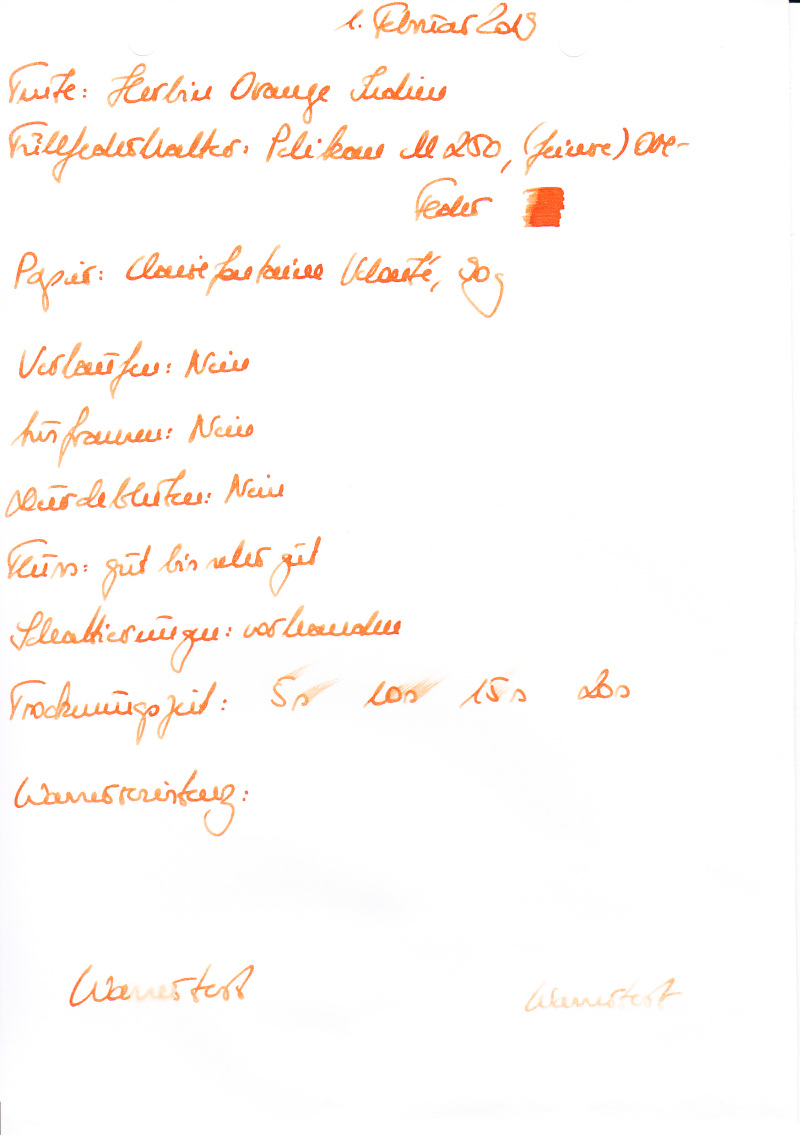 1. Februar 2019
Tinte: Herbin Orange Indien
Füllfederhalter: Pelikan M 250, (feinere) OBB-
Feder
Papier: Clairefontaine Velouté, 90g
Verlaufen: Nein
Ausfransen: Nein
Durchbluten: Nein
Fluss: gut bis sehr gut
Schattierungen: vorhanden
Trocknungszeit: 5s 10s 15s 20s
Wasserresistenz:
Wassertest Wassertest